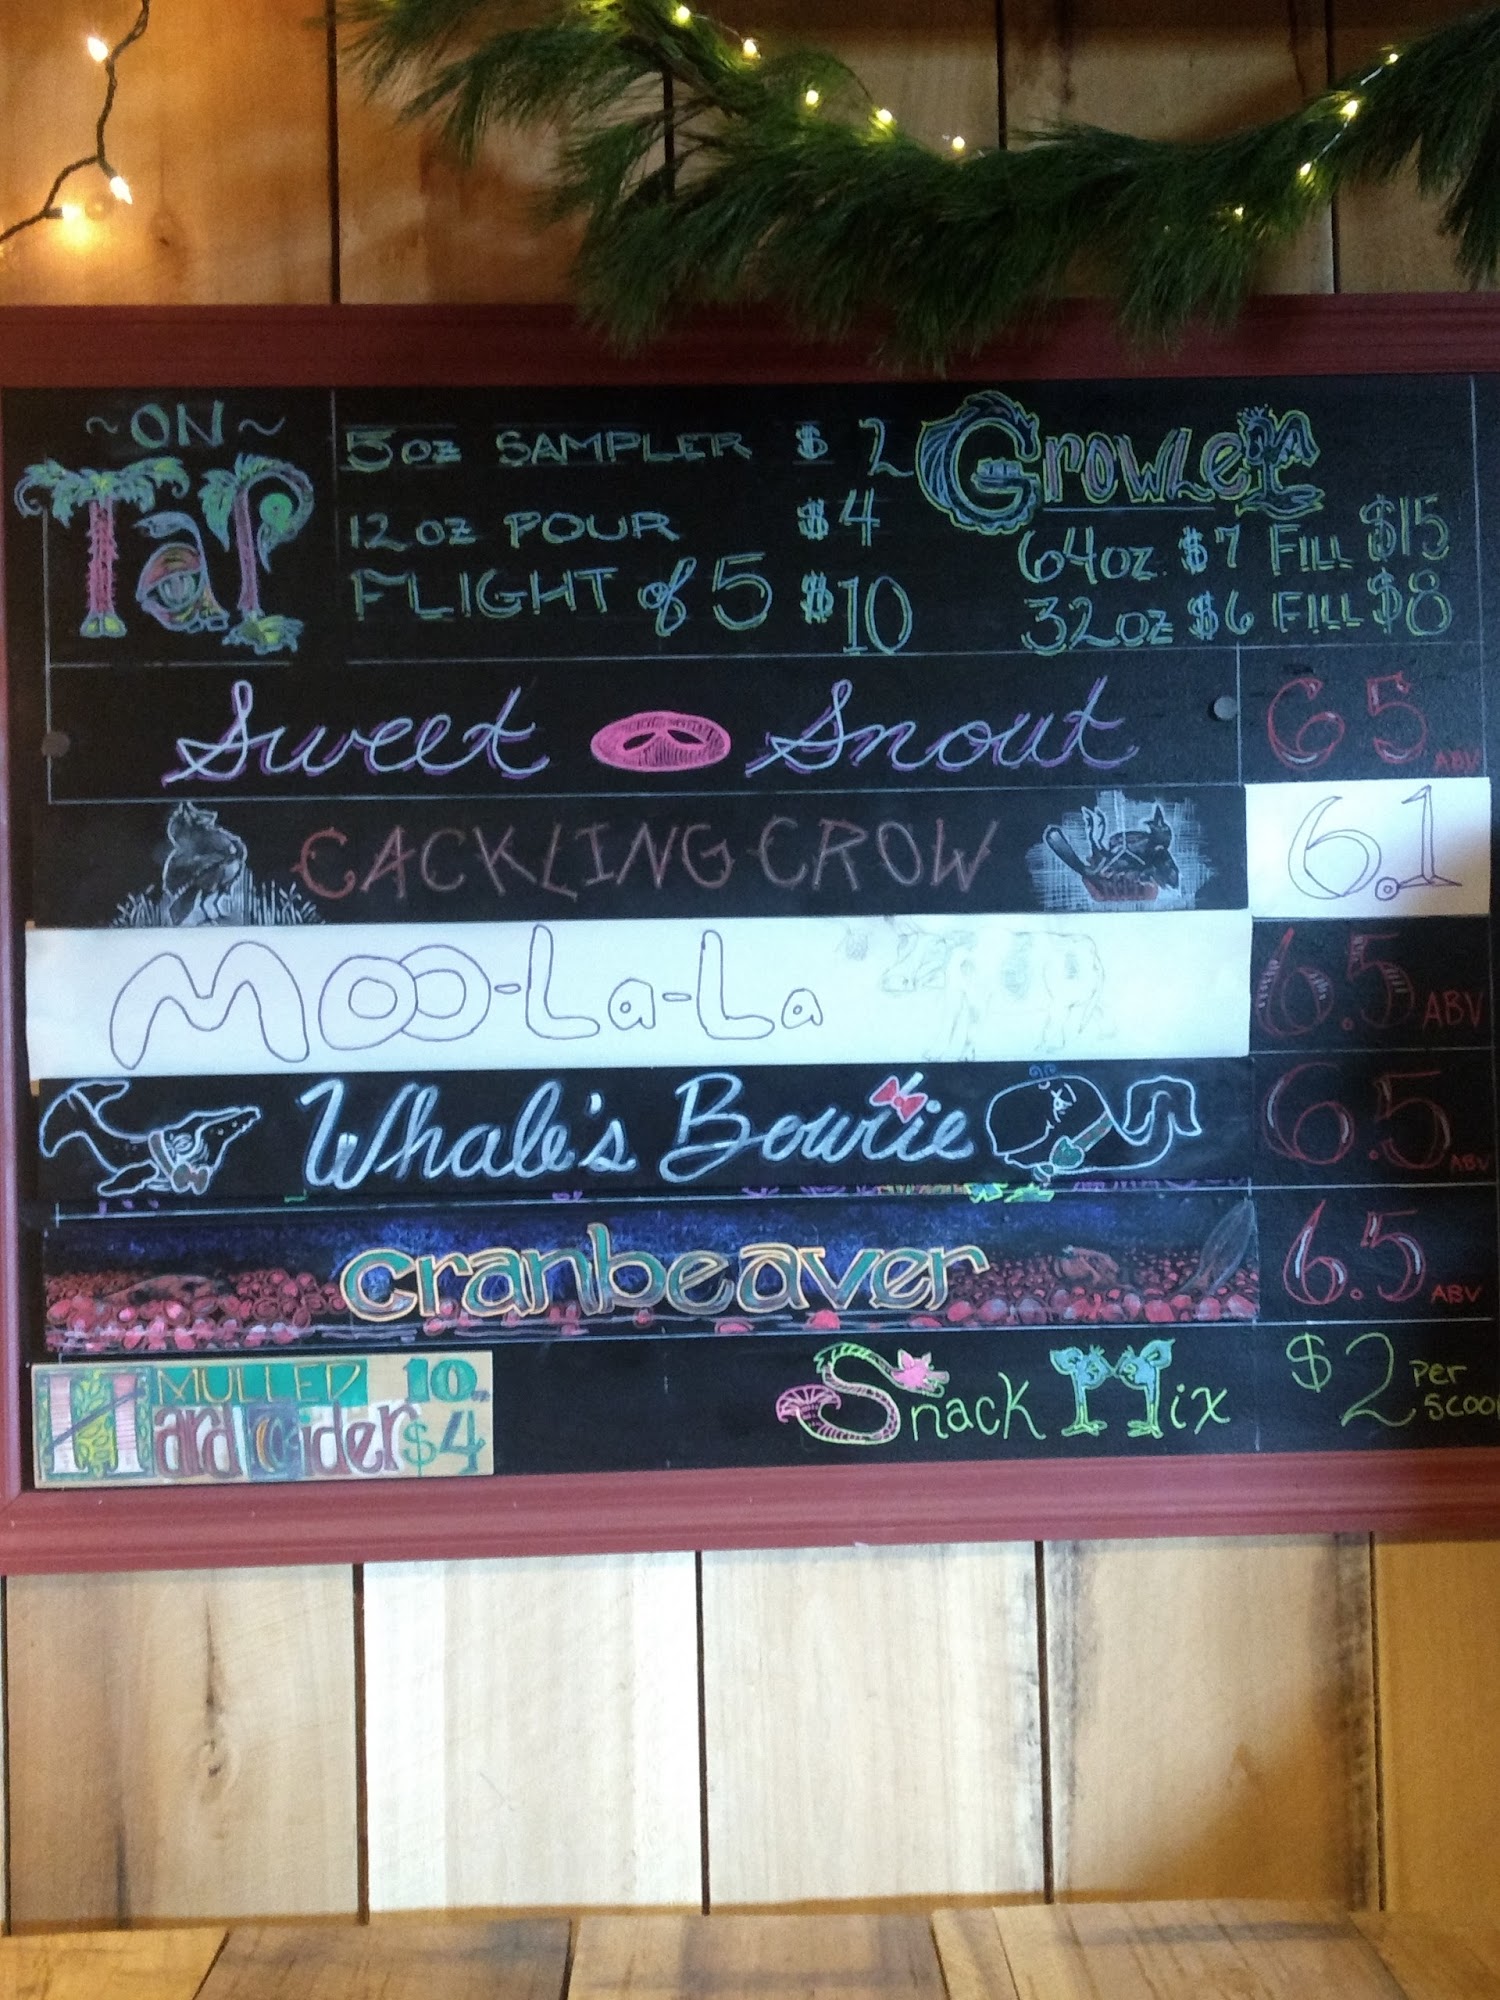 ~ON~
TaP
5oz SAMPLER $2
12oz POUR $4
FLIGHT of 5 $10
Growler
64oz. $7 FILL $15
32oz $6 FILL $8
Sweet Snout 6.5 ABV
CACKLING CROW 6.1
MOO-La-La 6.5 ABV
Whale's Bowtie 6.5 ABV
cranbeaver 6.5 ABV
MULLED 10oz
Hard Cider $4
Snack Mix $2 Per
SCOO